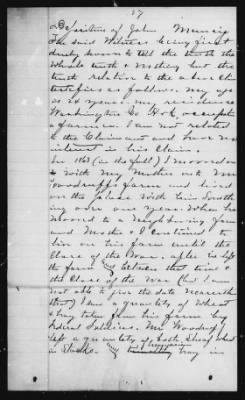 27
Deposition of John
The said Witness being first
duly sworn to tell the truth the
whole truth & nothing but the
truth relative to the above Cl
testifies as follows. My age
is 24 years. my residence
Washington Co.
a farmer. I am not related
to the Claimant and have no
interest in his Claim.
In 1863 (in the fall) I moved on
with My Mother onto Mr
Woodruffs farm and lived
on the place with him
over one year. When he
Moved to a Neighboring farm
and Mother & I continued to
live on his farm until the
Close of the War. after he left
the farm and between that time &
the Close of the War (but I am
not able to give the date nearer than
that) I saw a quantity of Wheat
& hay taken from his farm by
Federal Soldiers. Mr Woodruff
left a quantity of both wheat
in Stacks. hay in